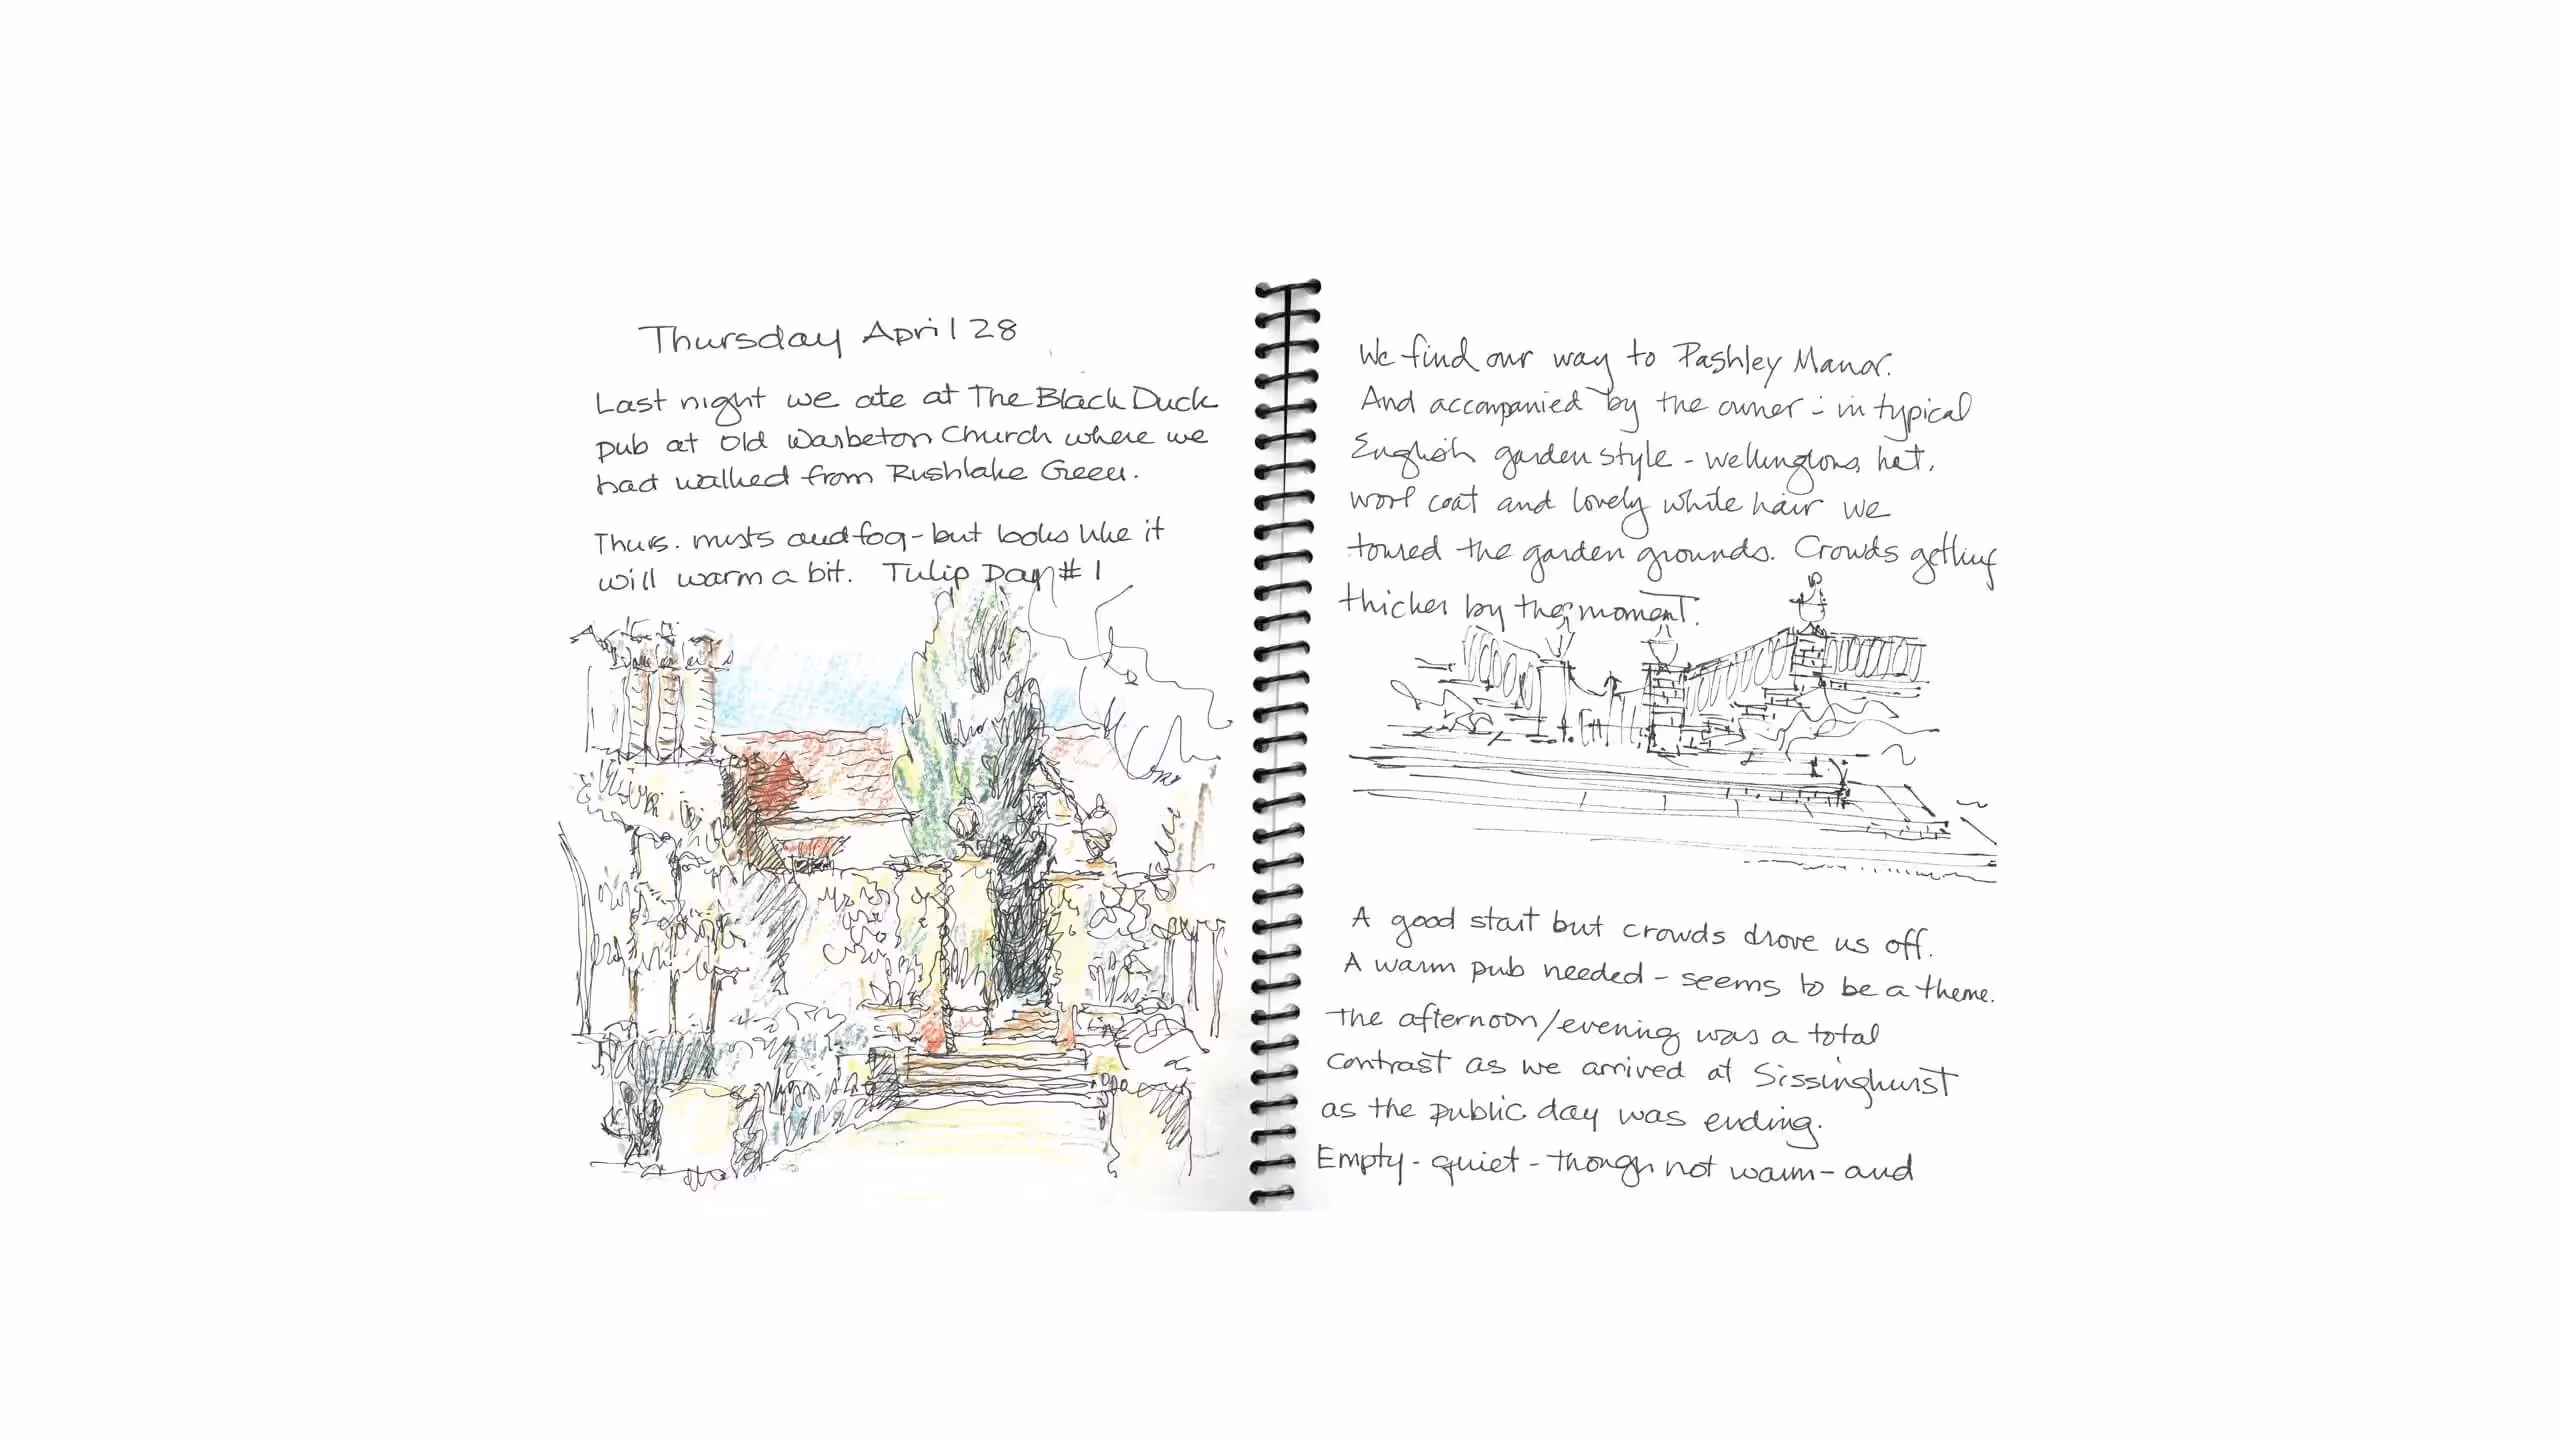 Thursday April 28
Last night we ate at The Black Duck
pub at Old Warbeton Church where we
had walked from Rushlake Green.
Thurs. mists and fog - but looks like it
will warm a bit. Tulip Day # 1
We find our way to Pashley Manor.
And accompanied by the owner - in typical
English garden style - wellingtons, hat,
wool coat and lovely white hair we
toured the garden grounds. Crowds getting
thicker by the moment.
A good start but crowds drove us off.
A warm pub needed - seems to be a theme.
The afternoon/evening was a total
contrast as we arrived at Sissinghurst
as the public day was ending.
Empty - quiet - though not warm - and